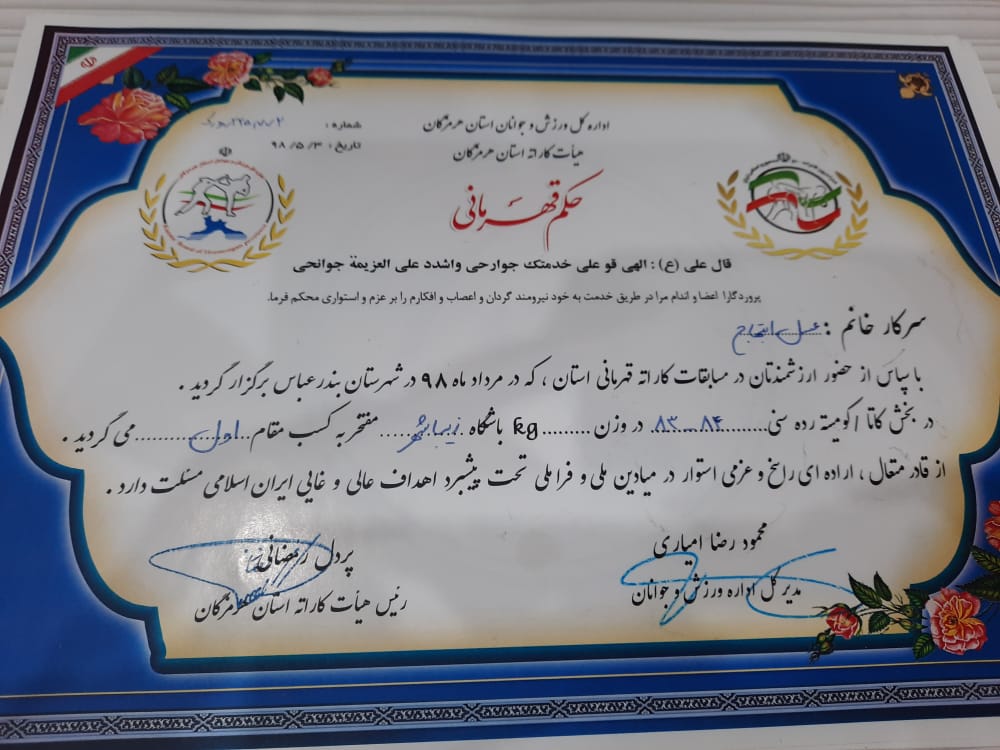 اداره کل ورزش و جوانان استان هرمزگان
هیأت کاراته استان هرمزگان
شماره :
تاریخ : ۹۸/۵/۳
حکم قهرمانی
قال علی (ع) : الهی قو علی خدمتک جوارحی واشدد علی العزیمة جوانحی
پروردگارا اعضا و اندام مرا در طریق خدمت به خود نیرومند گردان و اعصاب و افکارم را بر عزم و استواری محکم فرما.
سرکار خانم : عسل ابتهاج
با سپاس از حضور ارزشمندتان در مسابقات کاراته قهرمانی استان ، که در مرداد ماه ۹۸ در شهرستان بندرعباس برگزار گردید .
در بخش کاتا / کومیته رده سنی ۸۳-۸۴ در وزن .......... kg باشگاه زیباشهر مفتخر به کسب مقام اول می گردید .
از قادر متعال ، اراده ای راسخ و عزمی استوار در میادین ملی و فراملی تحت پیشبرد اهداف عالی و غایی ایران اسلامی مسئلت دارد .
محمود رضا امیاری
مدیر کل اداره ورزش و جوانان
پردل رمضانی
رئیس هیأت کاراته استان هرمزگان